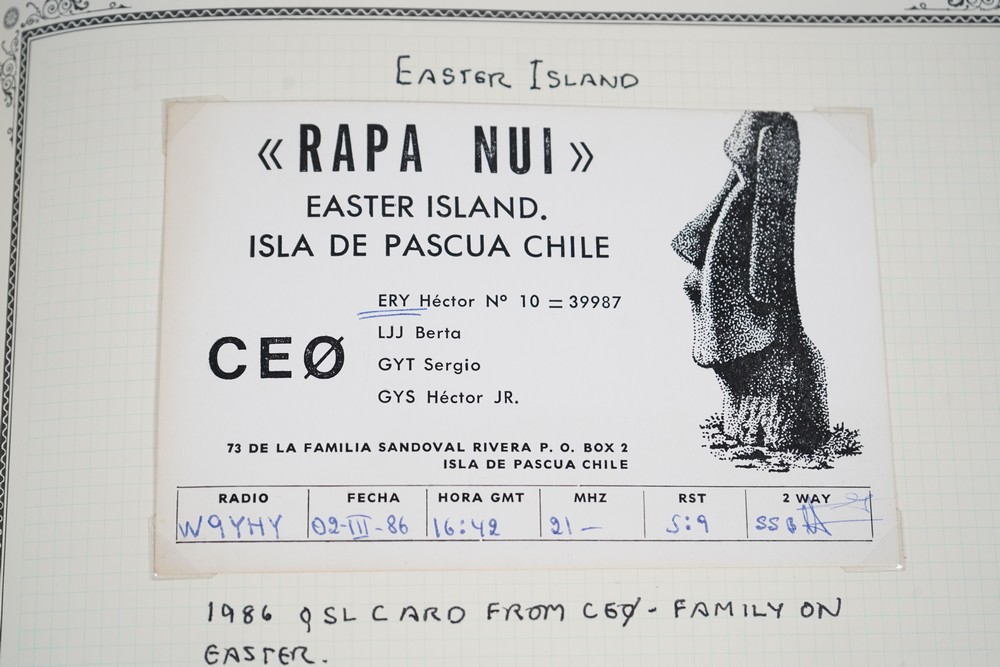 EASTER ISLAND
« RAPA NUI »
EASTER ISLAND.
ISLA DE PASCUA CHILE
CEØ
ERY Héctor Nº 10 = 39987
LJJ Berta
GYT Sergio
GYS Héctor JR.
73 DE LA FAMILIA SANDOVAL RIVERA P. O. BOX 2
ISLA DE PASCUA CHILE
RADIO FECHA HORA GMT MHZ RST 2 WAY
W9YHY 02-III-86 16:42 21- 5:9 SSB
1986 QSL CARD FROM CEØ - FAMILY ON
EASTER.